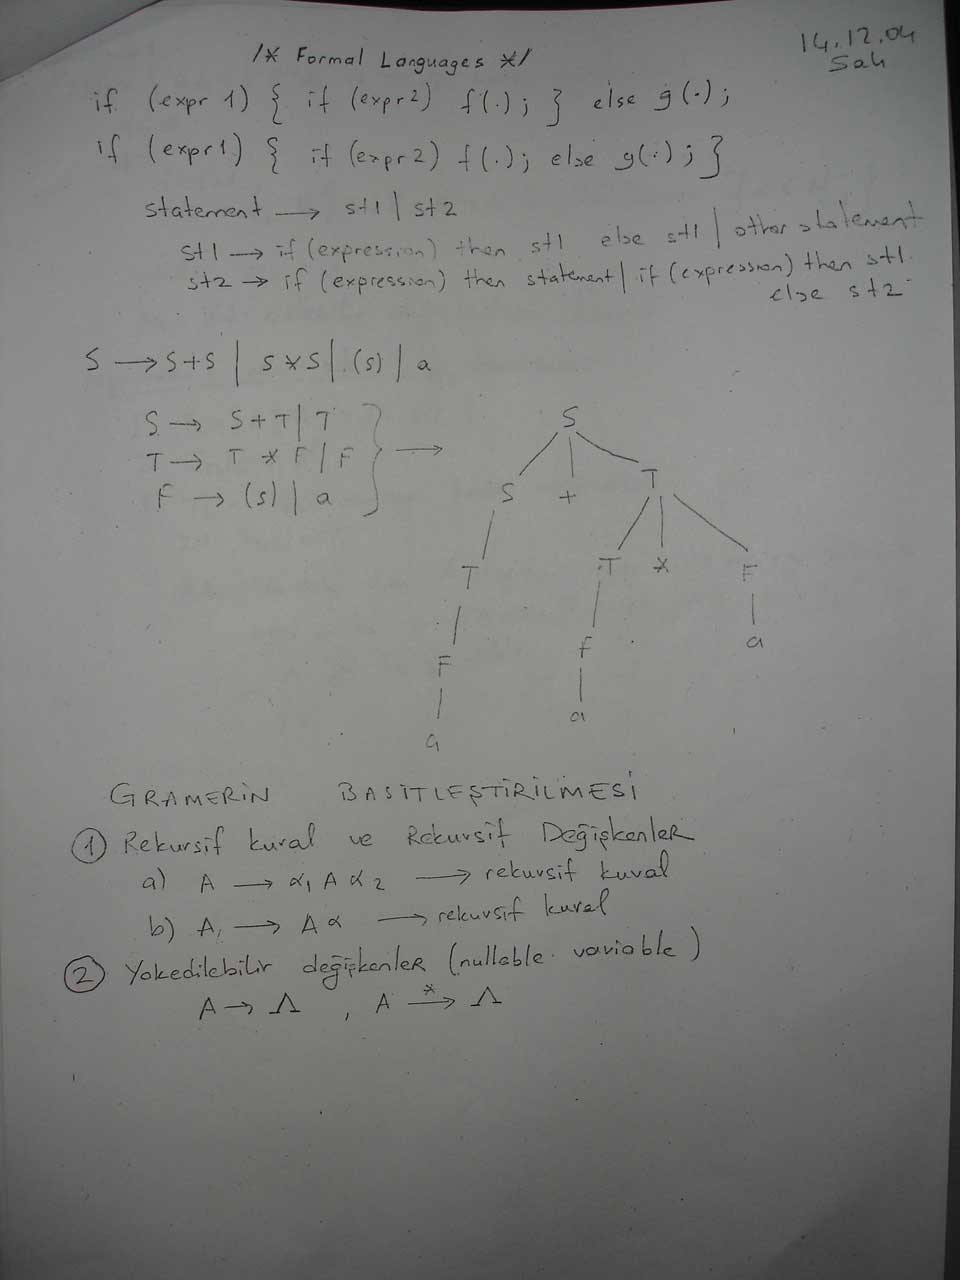 /* Formal Languages */
14.12.04
Salı
if (expr 1) { if (expr2) f(.); } else g(.);
if (expr1) { if (expr2) f(.); else g(.); }
statement → st1 | st2
st1 → if (expression) then st1 else st1 | other statement
st2 → if (expression) then statement | if (expression) then st1
else st2
S → S+S | S*S | (s) | a
S → S+T | T
T → T * F | F
F → (s) | a
} →
S
S + T
T T * F
F f a
a a
GRAMERİN BASİTLEŞTİRİLMESİ
1 Rekursif kural ve Rekursif Değişkenler
a) A → α1 A α2 → rekursif kural
b) A, → A α → rekursif kural
2 Yokedilebilir değişkenler (nullable variable)
A → Λ , A *→ Λ